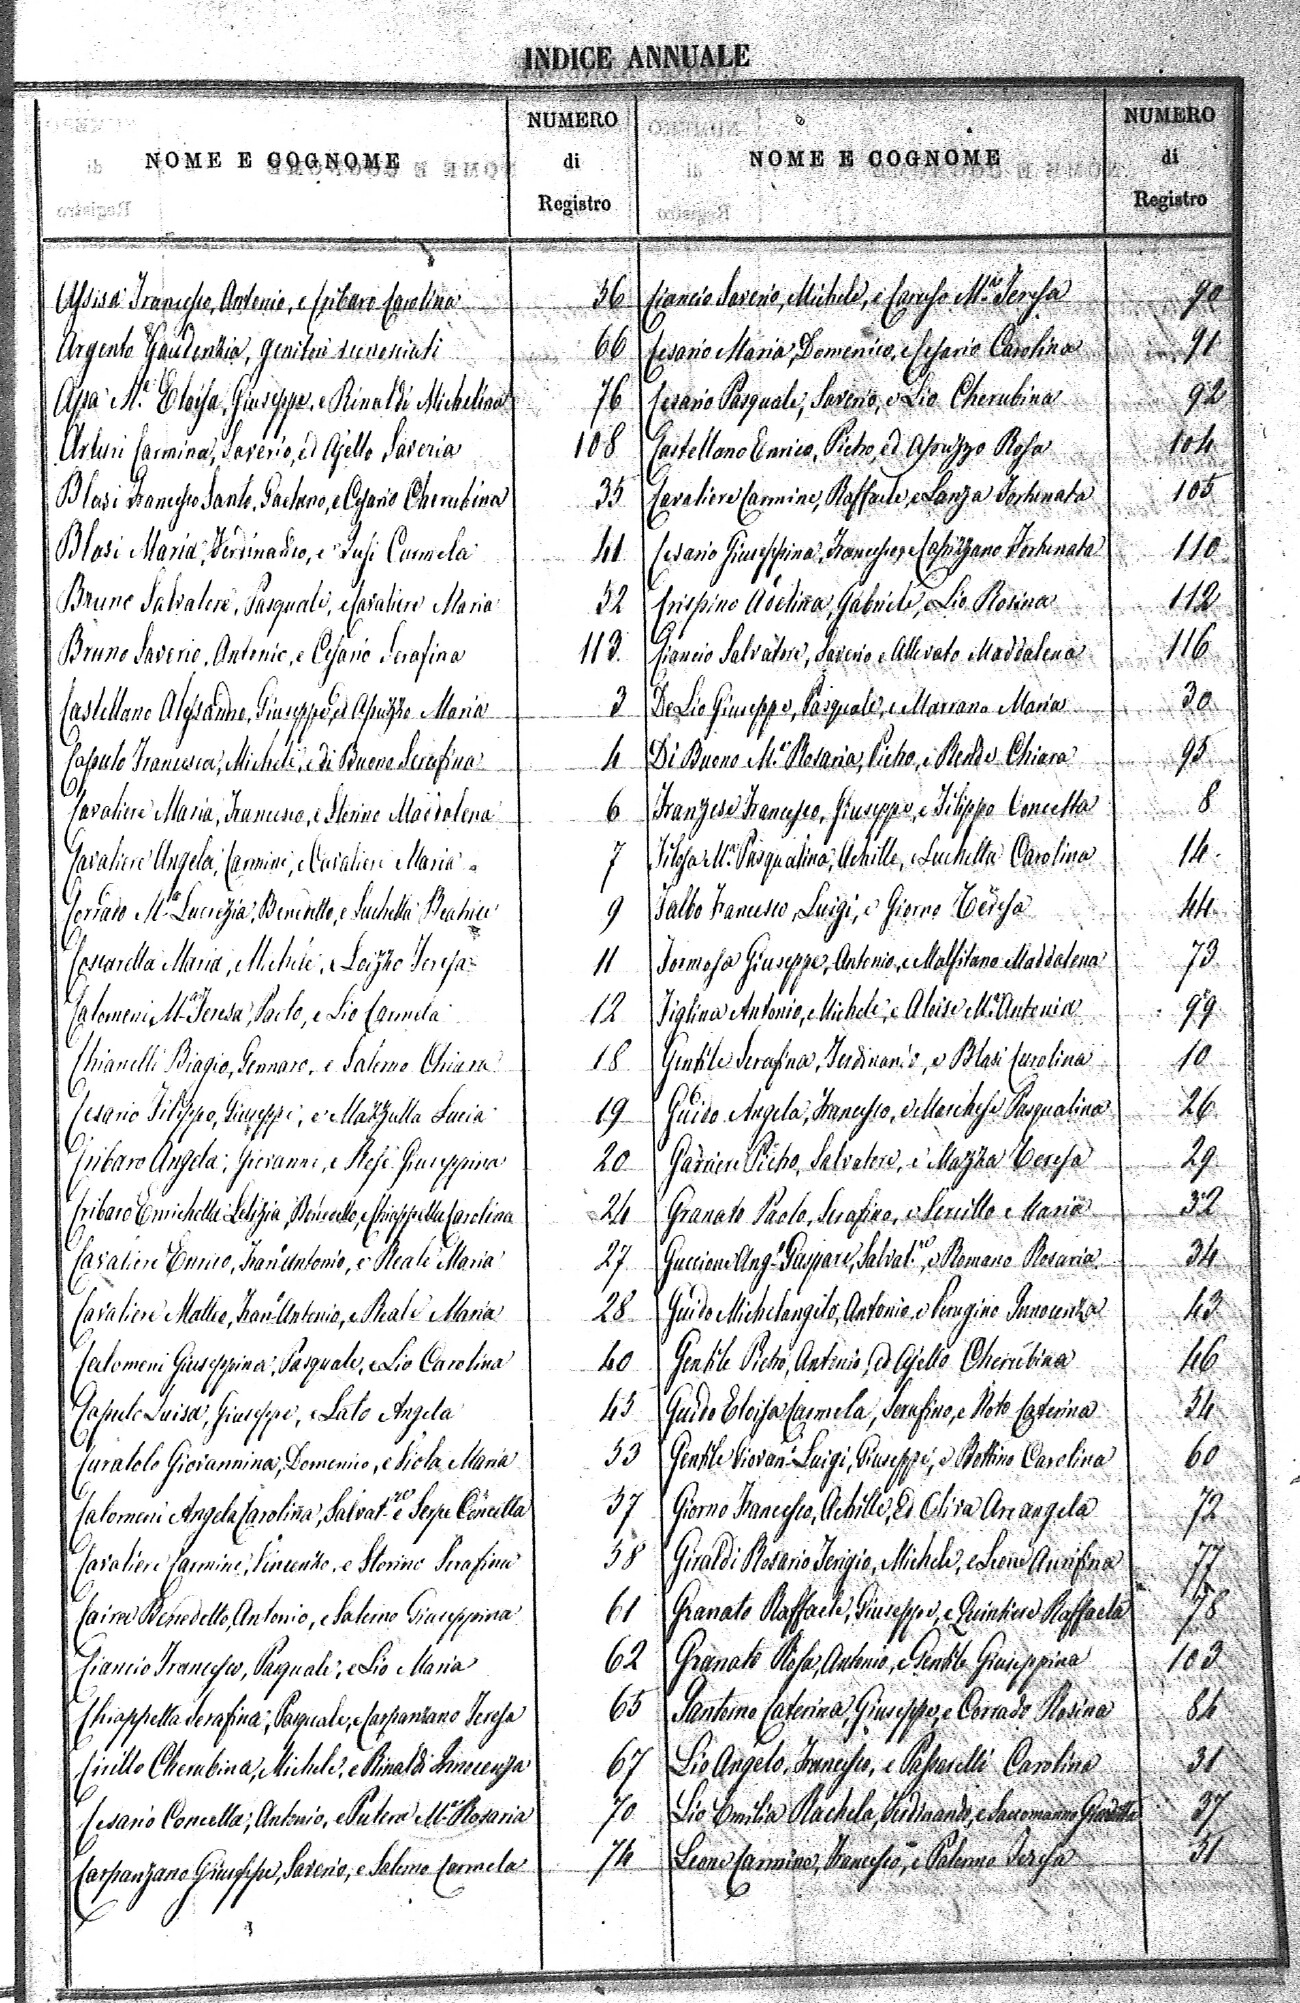 INDICE ANNUALE
NOME E COGNOME
NUMERO
di
Registro
Assisa Francesco, Antonio, e Cribaro Carolina 36
Argento Gaudenzia, genitori sconosciuti 66
Apa M.a Eloisa, Giuseppe, e Rinaldi Michelina 76
Arturi Carmina, Saverio, ed Ajello Saveria 108
Blasi Francesco Santo, Gaetano, e Cesario Cherubina 35
Blasi Maria, Ferdinando, e Carmela 41
Bruno Salvatore, Pasquale, e Cavaliere Maria 52
Bruno Saverio, Antonio, e Cesario Serafina 113
Castellano Alessandro, Giuseppe, ed Apuzzo Maria 3
Caputo Francesca, Michele, e di Buono Serafina 4
Cavaliere Maria, Francesco, e Storino Maddalena 6
Cavaliere Angela, Carmine, e Cavaliere Maria 7
Corrado M.a Lucrezia, Benedetto, e Luchetta Beatrice 9
Coscarella Maria, Michele, e Loizzo Teresa 11
Calomeni M.a Teresa, Paolo, e Lio Carmela 12
Chianelli Biagio, Gennaro, e Salerno Chiara 18
Cesario Filippo, Giuseppe, e Mazzulla Lucia 19
Cribaro Angela, Giovanni, e Giuseppina 20
Cribaro Enrichetta Letizia, Benedetto, e Chiappetta Carolina 24
Cavaliere Enrico, Fran.o Antonio, e Reale Maria 27
Cavaliere Matteo, Fran.o Antonio, e Reale Maria 28
Calomeni Giuseppina, Pasquale, e Lio Carolina 40
Caputo Luisa, Giuseppe, e Lato Angela 45
Curatolo Giovannina, Domenico, e Maria 53
Calomeni Angela Carolina, Salvat.re e Serpe Concetta 57
Cavaliere Carmine, Vincenzo, e Storino Serafina 58
Caira Benedetto, Antonio, e Salerno Giuseppina 61
Ciancio Francesco, Pasquale, e Lio Maria 62
Chiappetta Serafina, Pasquale, e Carpanzano Teresa 65
Cirillo Cherubina, Michele, e Rinaldi Innocenza 67
Cesario Concetta, Antonio, e Putero M.a Rosaria 70
Carpanzano Giuseppe, Saverio, e Salerno Carmela 74
NOME E COGNOME
NUMERO
di
Registro
Ciancio Saverio, Michele, e Caruso M.a Teresa 90
Cesario Maria, Domenico, e Cesario Carolina 91
Cesario Pasquale, Saverio, e Lio Cherubina 92
Castellano Enrico, Pietro, ed Apuzzo Rosa 104
Cavaliere Carmine, Raffaele, e Lanza Fortunata 105
Cesario Giuseppina, Francesco, e Capizzano Fortunata 110
Crispino Adelina, Gabriele, e Lio Rosina 112
Ciancio Salvatore, Saverio e Allevato Maddalena 116
De Lio Giuseppe, Pasquale, e Marrano Maria 30
Di Buono M.a Rosaria, Pietro, e Rende Chiara 95
Franzese Francesco, Giuseppe, e Filippo Concetta 8
Filosa M.a Pasqualina, Achille, e Luchetta Carolina 14
Falbo Francesco, Luigi, e Giorno Teresa 44
Formosa Giuseppe, Antonio, e Malfitano Maddalena 73
Figlina Antonio, Michele, e Aloise M.a Antonia 99
Gentile Serafina, Ferdinando, e Blasi Carolina 10
Guido Angela, Francesco, e Marchese Pasqualina 26
Garrieri Pietro, Salvatore, e Mazza Teresa 29
Granato Paolo, Serafino, e Servillo Maria 32
Guccione Ang.o Gaspare, Salvat.re, e Romano Rosaria 34
Guido Michelangelo, Antonio, e Perugino Innocenza 43
Gentile Pietro, Antonio, ed Ajello Cherubina 46
Guido Eloisa Carmela, Serafino, e Noto Caterina 54
Gentile Giovan.i Luigi, Giuseppe, e Bottino Carolina 60
Giorno Francesco, Achille, Ed Oliva Arcangela 72
Giraldi Rosario Michele, e Leone Aurifina 77
Granato Raffaele, Giuseppe, e Quintieri Raffaela 78
Granato Rosa, Antonio, e Gentile Giuseppina 103
Iantorno Caterina, Giuseppe, e Corrado Rosina 84
Lio Angelo, Francesco, e Passarelli Carolina 31
Lio Emilia Rachela, Ferdinando, e Saccomanno 37
Leone Carmine, Francesco, e Palermo Teresa 51